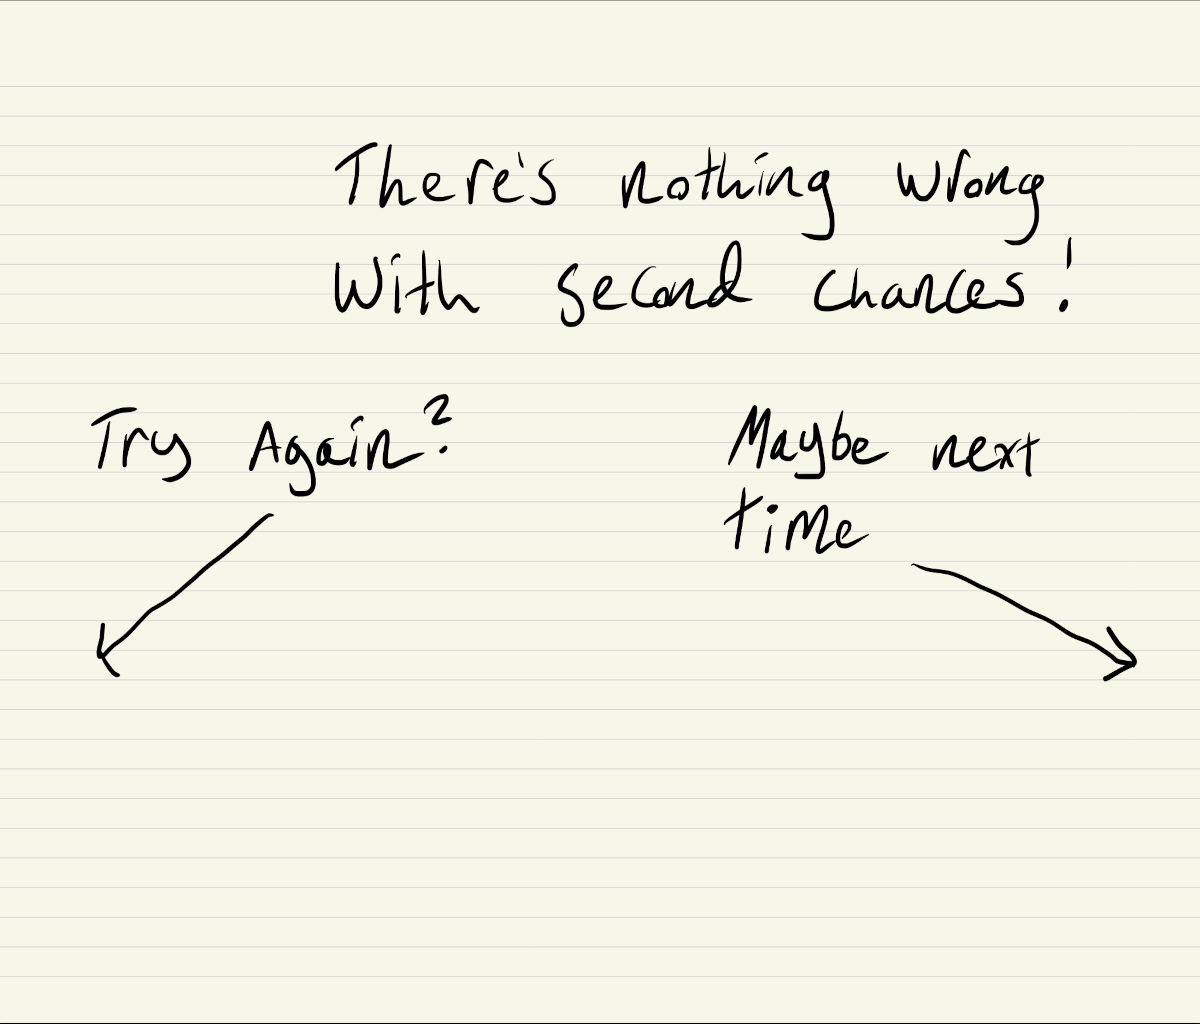 There's nothing wrong
With second chances!
Try Again?
Maybe next
time